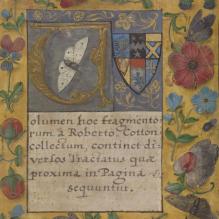 Uolumen hoc fragmento
rum à Roberto Cotton
collectum, continet di
versos Tractatus quæ
proxima in Pagina
sequuntur.